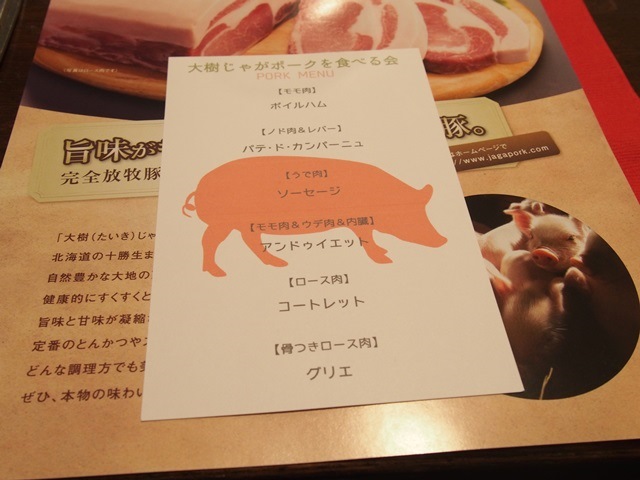 大樹じゃがポークを食べる会
PORK MENU
【モモ肉】
ボイルハム
【ノド肉&レバー】
パテ・ド・カンパーニュ
【うで肉】
ソーセージ
【モモ肉&ウデ肉&内臓】
アンドゥイエット
【ロース肉】
コートレット
【骨つきロース肉】
グリエ
旨味が
豚。
完全放牧豚
ホームページで
//www.jagapork.com
「大樹(たいき)じゃ
北海道の十勝生ま
自然豊かな大地の
健康的にすくすくと
旨味と甘味が凝縮
定番のとんかつや
どんな調理方でも
ぜひ、本物の味わい